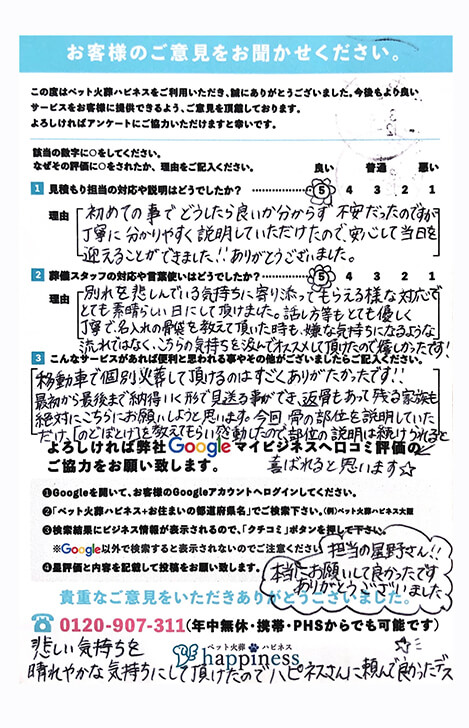 お客様のご意見をお聞かせください。
この度はペット火葬ハピネスをご利用いただき、誠にありがとうございました。今後もより良い
サービスをお客様に提供できるよう、ご意見を頂戴しております。
よろしければアンケートにご協力いただけますと幸いです。
該当の数字に○をしてください。
なぜその評価に○をされたか、理由をご記入ください。 良い 普通 悪い
1 見積もり担当の対応や説明はどうでしたか? 5 4 3 2 1
理由 初めての事でどうしたら良いか分からず 不安だったのですが
丁寧に分かりやすく説明していただけたので、安心して当日を
迎えることができました!!ありがとうございました。
2 葬儀スタッフの対応や言葉使いはどうでしたか? 5 4 3 2 1
理由 別れを悲しんでいる気持ちに寄り添ってもらえる様な対応で
とても素晴らしい日にして頂けました。話し方等もとても優しく
丁寧で、名入れの骨袋を教えて頂いた時も、嫌な気持ちになるような
流れではなく、こちらの気持ちを汲んでオススメして頂けたので嬉しかったです!
3 こんなサービスがあれば便利と思われる事やその他がございましたらご記入ください。
移動車で個別火葬して頂けるのはすごくありがたかったです!!
最初から最後まで納得いく形で見送る事ができ、返骨もあって残る家族も
絶対にこちらにお願いしようと思います。今回、骨の部位を説明していた
だけ、「のどぼとけ」を教えてもらい感動したので部位の説明は続けられると
喜ばれると思います☆
よろしければ弊社Googleマイビジネスへ口コミ評価の
ご協力をお願い致します。
❶Googleを開いて、お客様のGoogleアカウントへログインしてください。
❷「ペット火葬ハピネス+お住まいの都道府県名」でご検索下さい。(例)ペット火葬ハピネス大阪
❸検索結果にビジネス情報が表示されるので、「クチコミ」ボタンを押して下さい。
※Google以外で検索すると表示されないのでご注意ください
❹星評価と内容を記載して投稿をお願い致します。
担当の星野さん!!
本当にお願いして良かったです
ありがとうございました
貴重なご意見をいただきありがとうございました。
0120-907-311(年中無休・携帯・PHSからでも可能です)
ペット火葬 ハピネス
happiness
悲しい気持ちを
晴れやかな気持ちにして頂けたのでハピネスさんに頼んで良かったデス